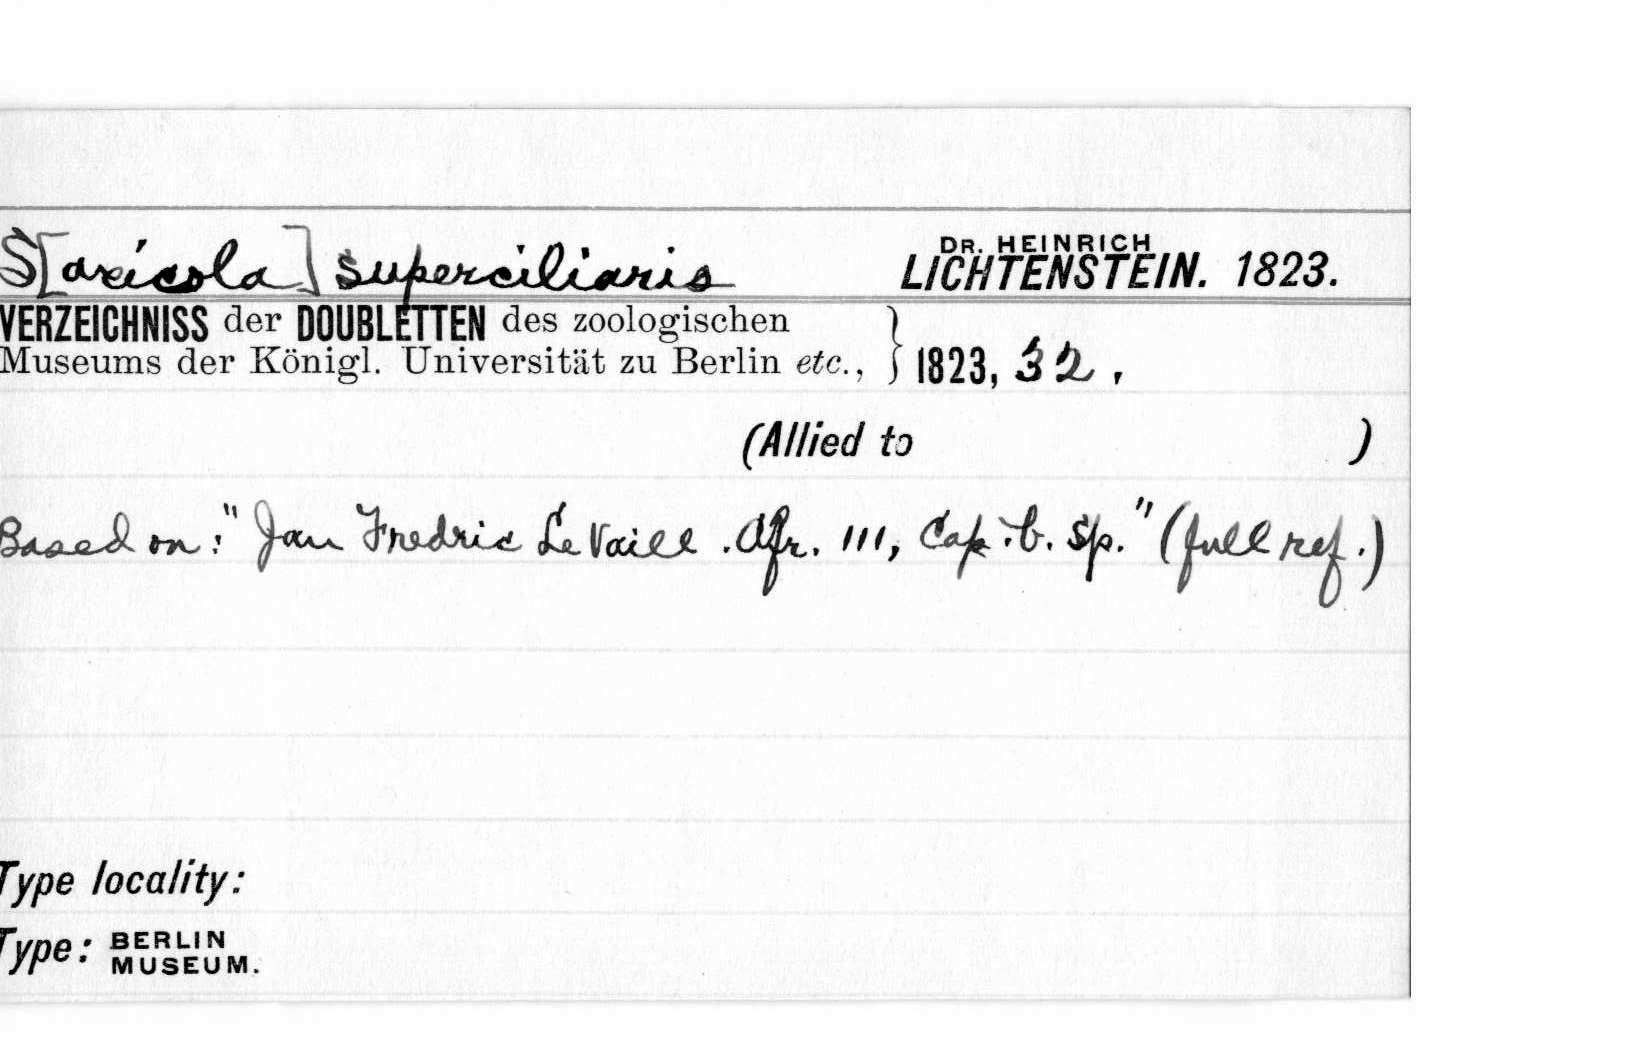 S[axicola] superciliaris
DR. HEINRICH
LICHTENSTEIN. 1823.
VERZEICHNISS der DOUBLETTEN des zoologischen
Museums der Königl. Universität zu Berlin etc., } 1823, 32.
(Allied to )
Based on: "Jan Fredric Le Vaill. Afr. 111, Cap. b. Sp." (full ref.)
Type locality:
Type: BERLIN
MUSEUM.